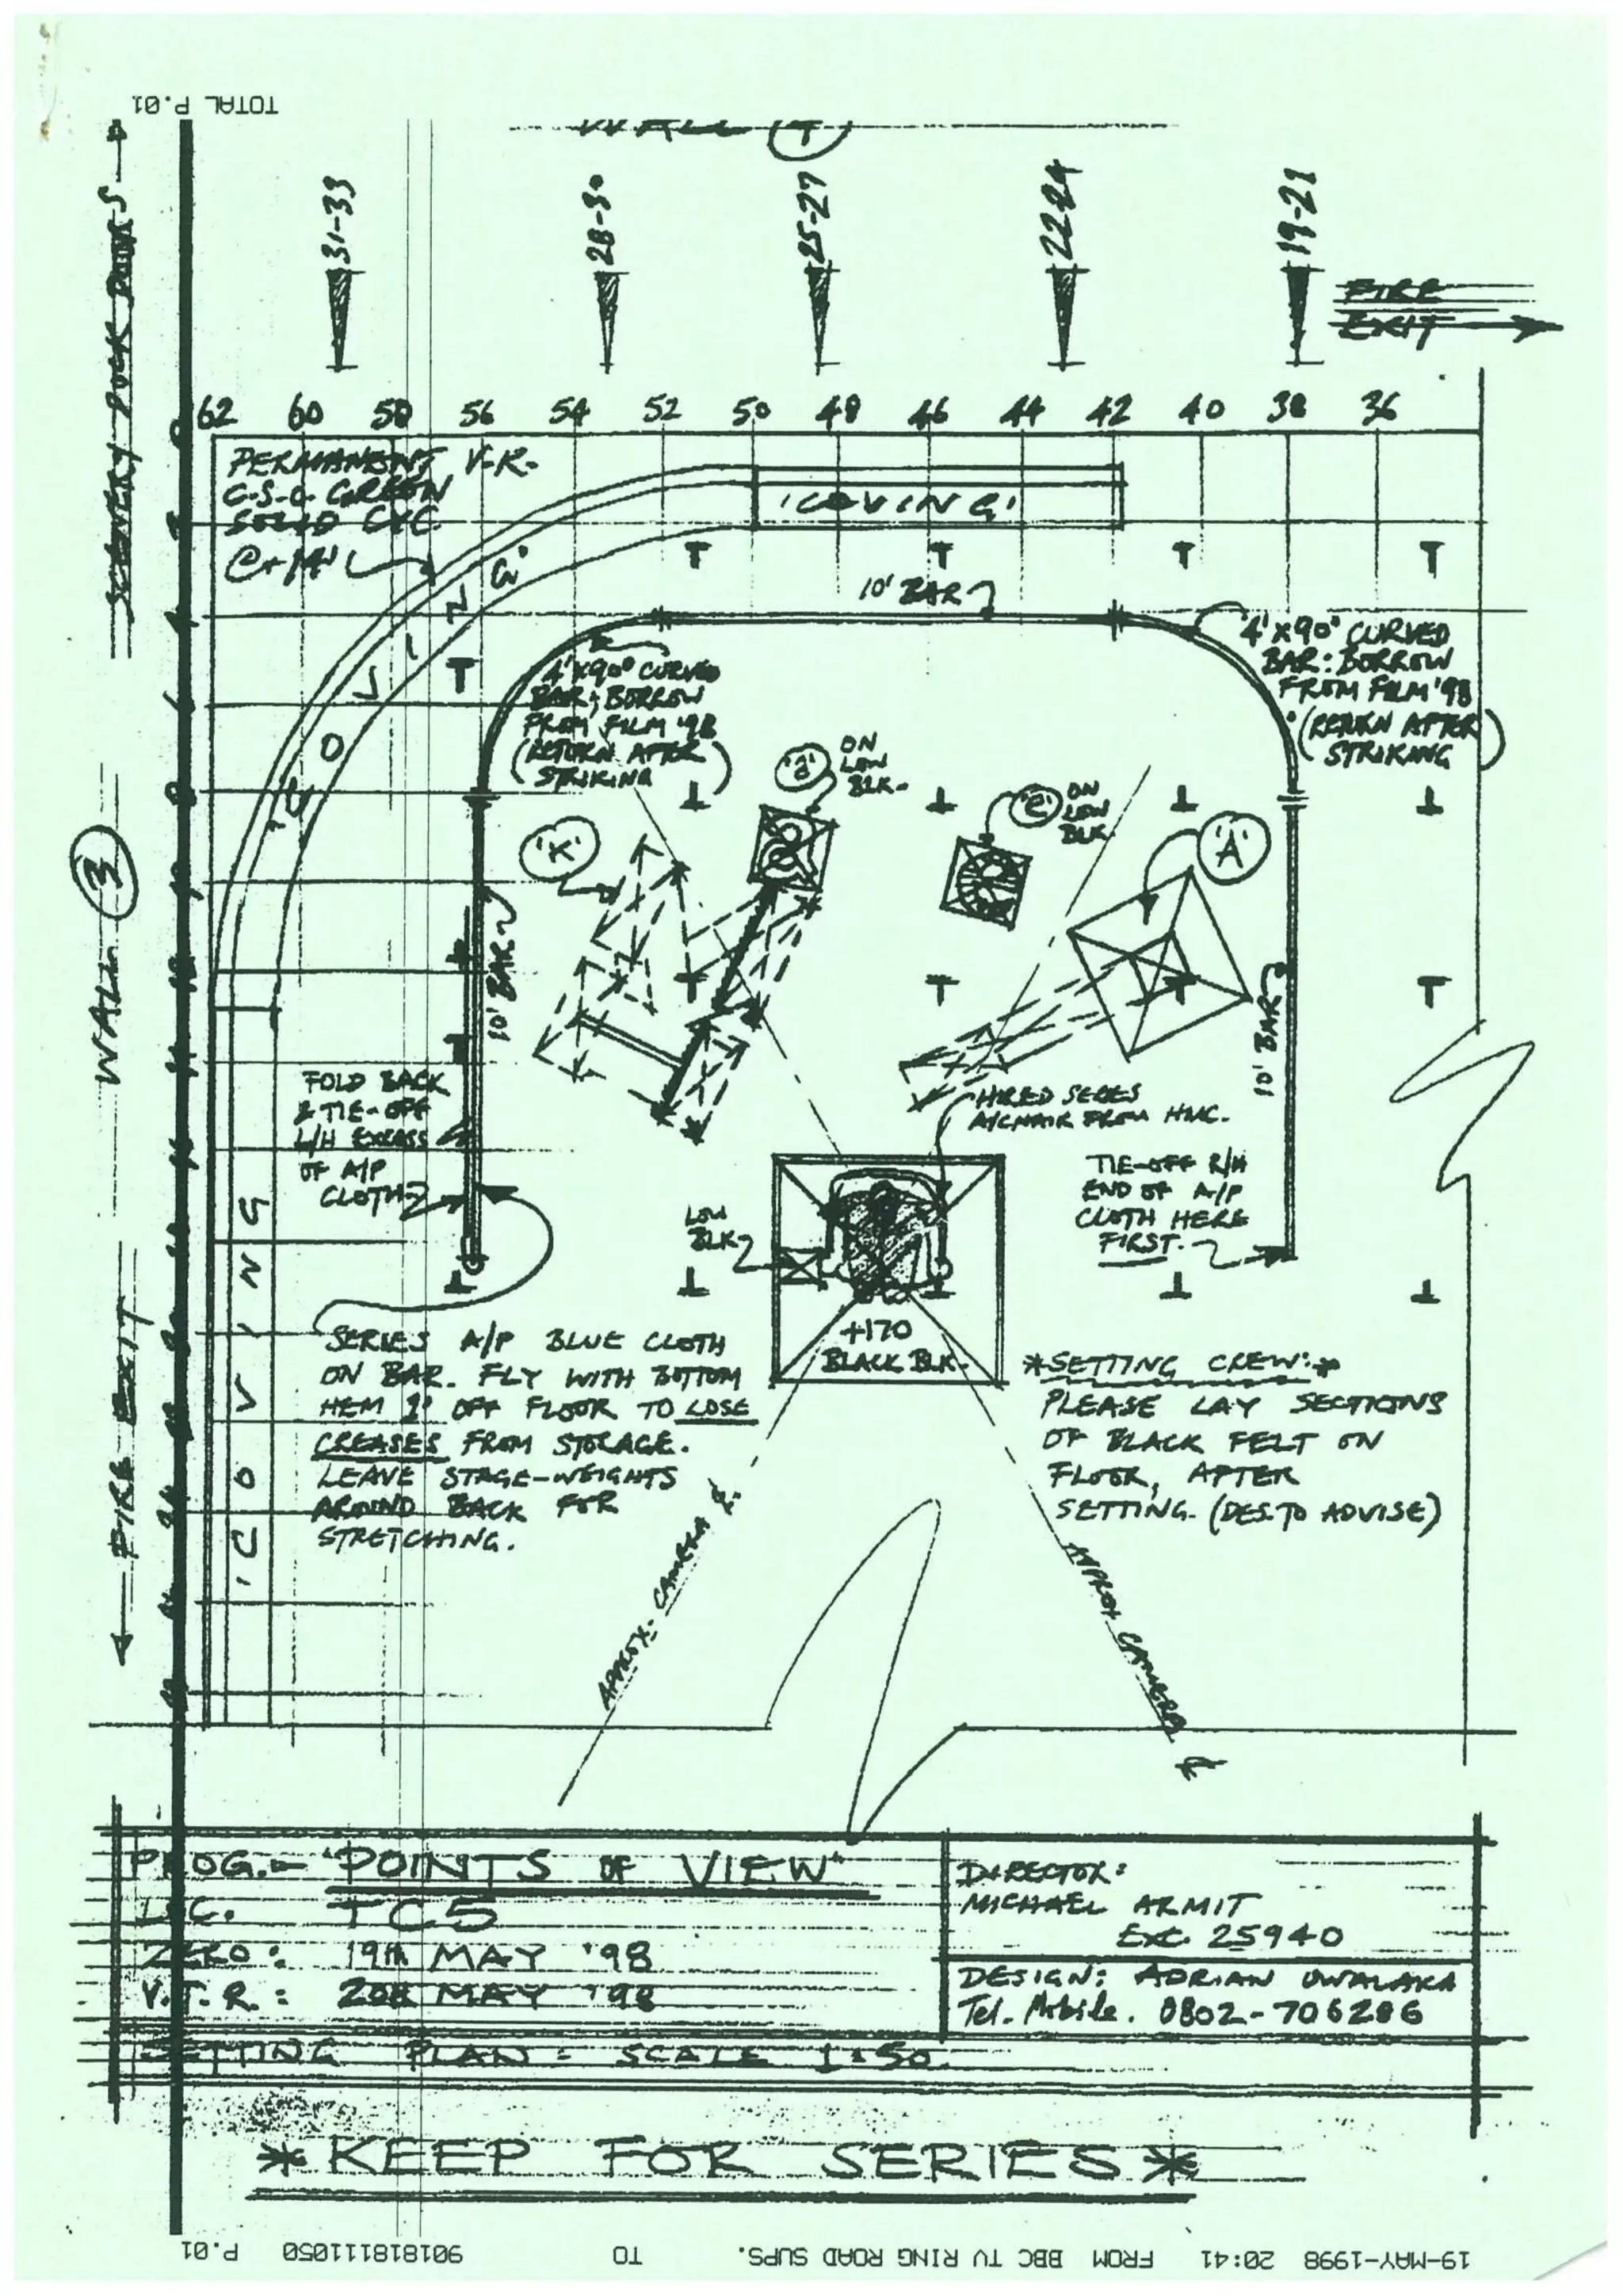 TOTAL P.01
WALL
31-33
28-30
25-27
22-24
19-21
FIRE
EXIT
SCENERY DOCK DOORS
62 60 58 56 54 52 50 48 46 44 42 40 38 36
PERMANENT V.R.
C.S.C. GREEN
SOLID CYC.
@+14'
'COVING'
'COVING'
10' BAR
4'x90° CURVED
BAR: BORROW
FROM FILM '98
(RETURN AFTER
STRIKING
4'x90° CURVED
BAR: BORROW
FROM FILM '98
(RETURN AFTER)
STRIKING
'K'
'a'
ON
LOW
BLK.
'e'
ON
LOW
BLK.
'A'
WALL 3
10' BAR
10' BAR
FOLD BACK
& TIE-OFF
L/H EXCESS
OF A/P
CLOTH
HIRED SERIES
A/CHAIR FROM HMC.
TIE-OFF R/H
END OF A/P
CLOTH HERE
FIRST.
LOW
BLK
+170
BLACK BLK.
FIRE EXIT
'COVING
SERIES A/P BLUE CLOTH
ON BAR. FLY WITH BOTTOM
HEM 1" OFF FLOOR TO LOSE
CREASES FROM STORAGE.
LEAVE STAGE-WEIGHTS
AROUND BACK FOR
STRETCHING.
*SETTING CREW:*
PLEASE LAY SECTIONS
OF BLACK FELT ON
FLOOR, AFTER
SETTING. (DES. TO ADVISE)
APPROX: CAMERA
APPROX. CAMERA
PROG.- "POINTS OF VIEW"
LOC. TC5
ZERO: 19th MAY '98
V.T.R.: 20th MAY '98
SETTING PLAN = SCALE 1:50.
DIRECTOR:
MICHAEL ARMIT
Ext. 25940
DESIGN: ADRIAN UWALAKA
Tel. Mobile. 0802-706286
*KEEP FOR SERIES*
19-MAY-1998 20:41 FROM BBC TV RING ROAD SUPS. TO 901818111050 P.01